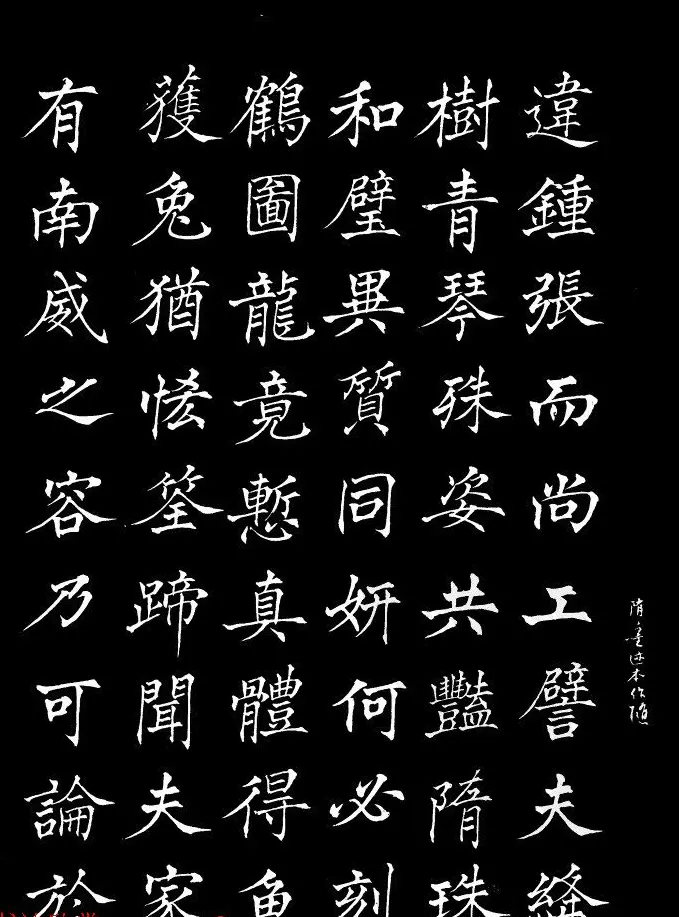 隋墨迹本作隨
違鍾張而尚工譬夫絳
樹青琴殊姿共豔隋珠
和璧異質同妍何必刻
鶴圖龍竟慙真體得魚
獲兔猶恡筌蹄聞夫家
有南威之容乃可論於